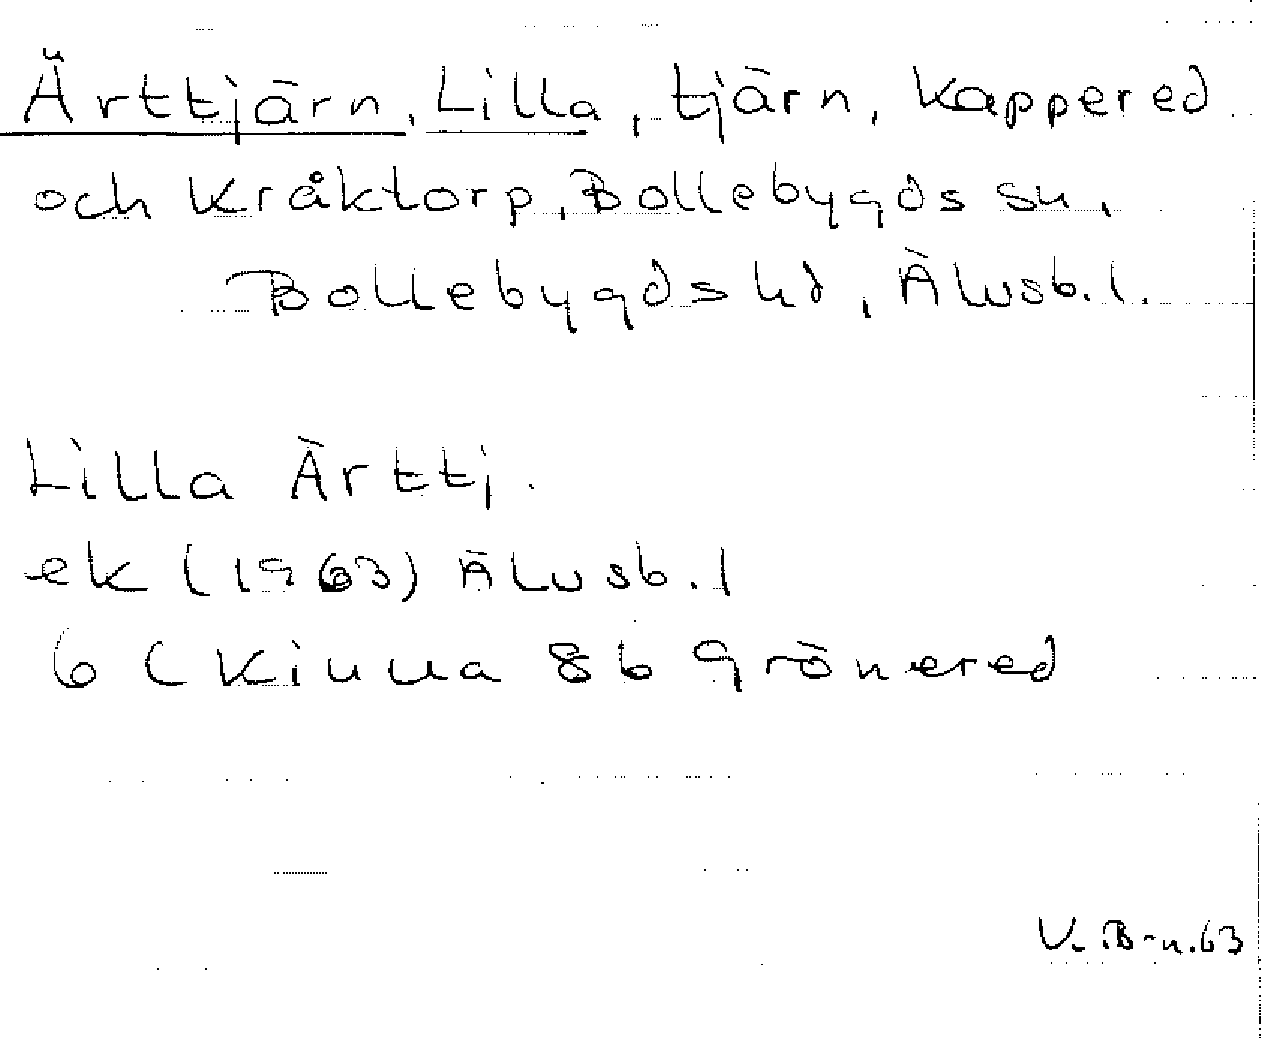 Ärttjärn, Lilla, tjärn, Kappered
och Kråktorp, Bollebygds sn,
Bollebygds hd, Älvsb. l.
Lilla Ärttj.
ek (1963) Älvsb. l
6 (Kinna 8b Grönered
V. B-n. 63